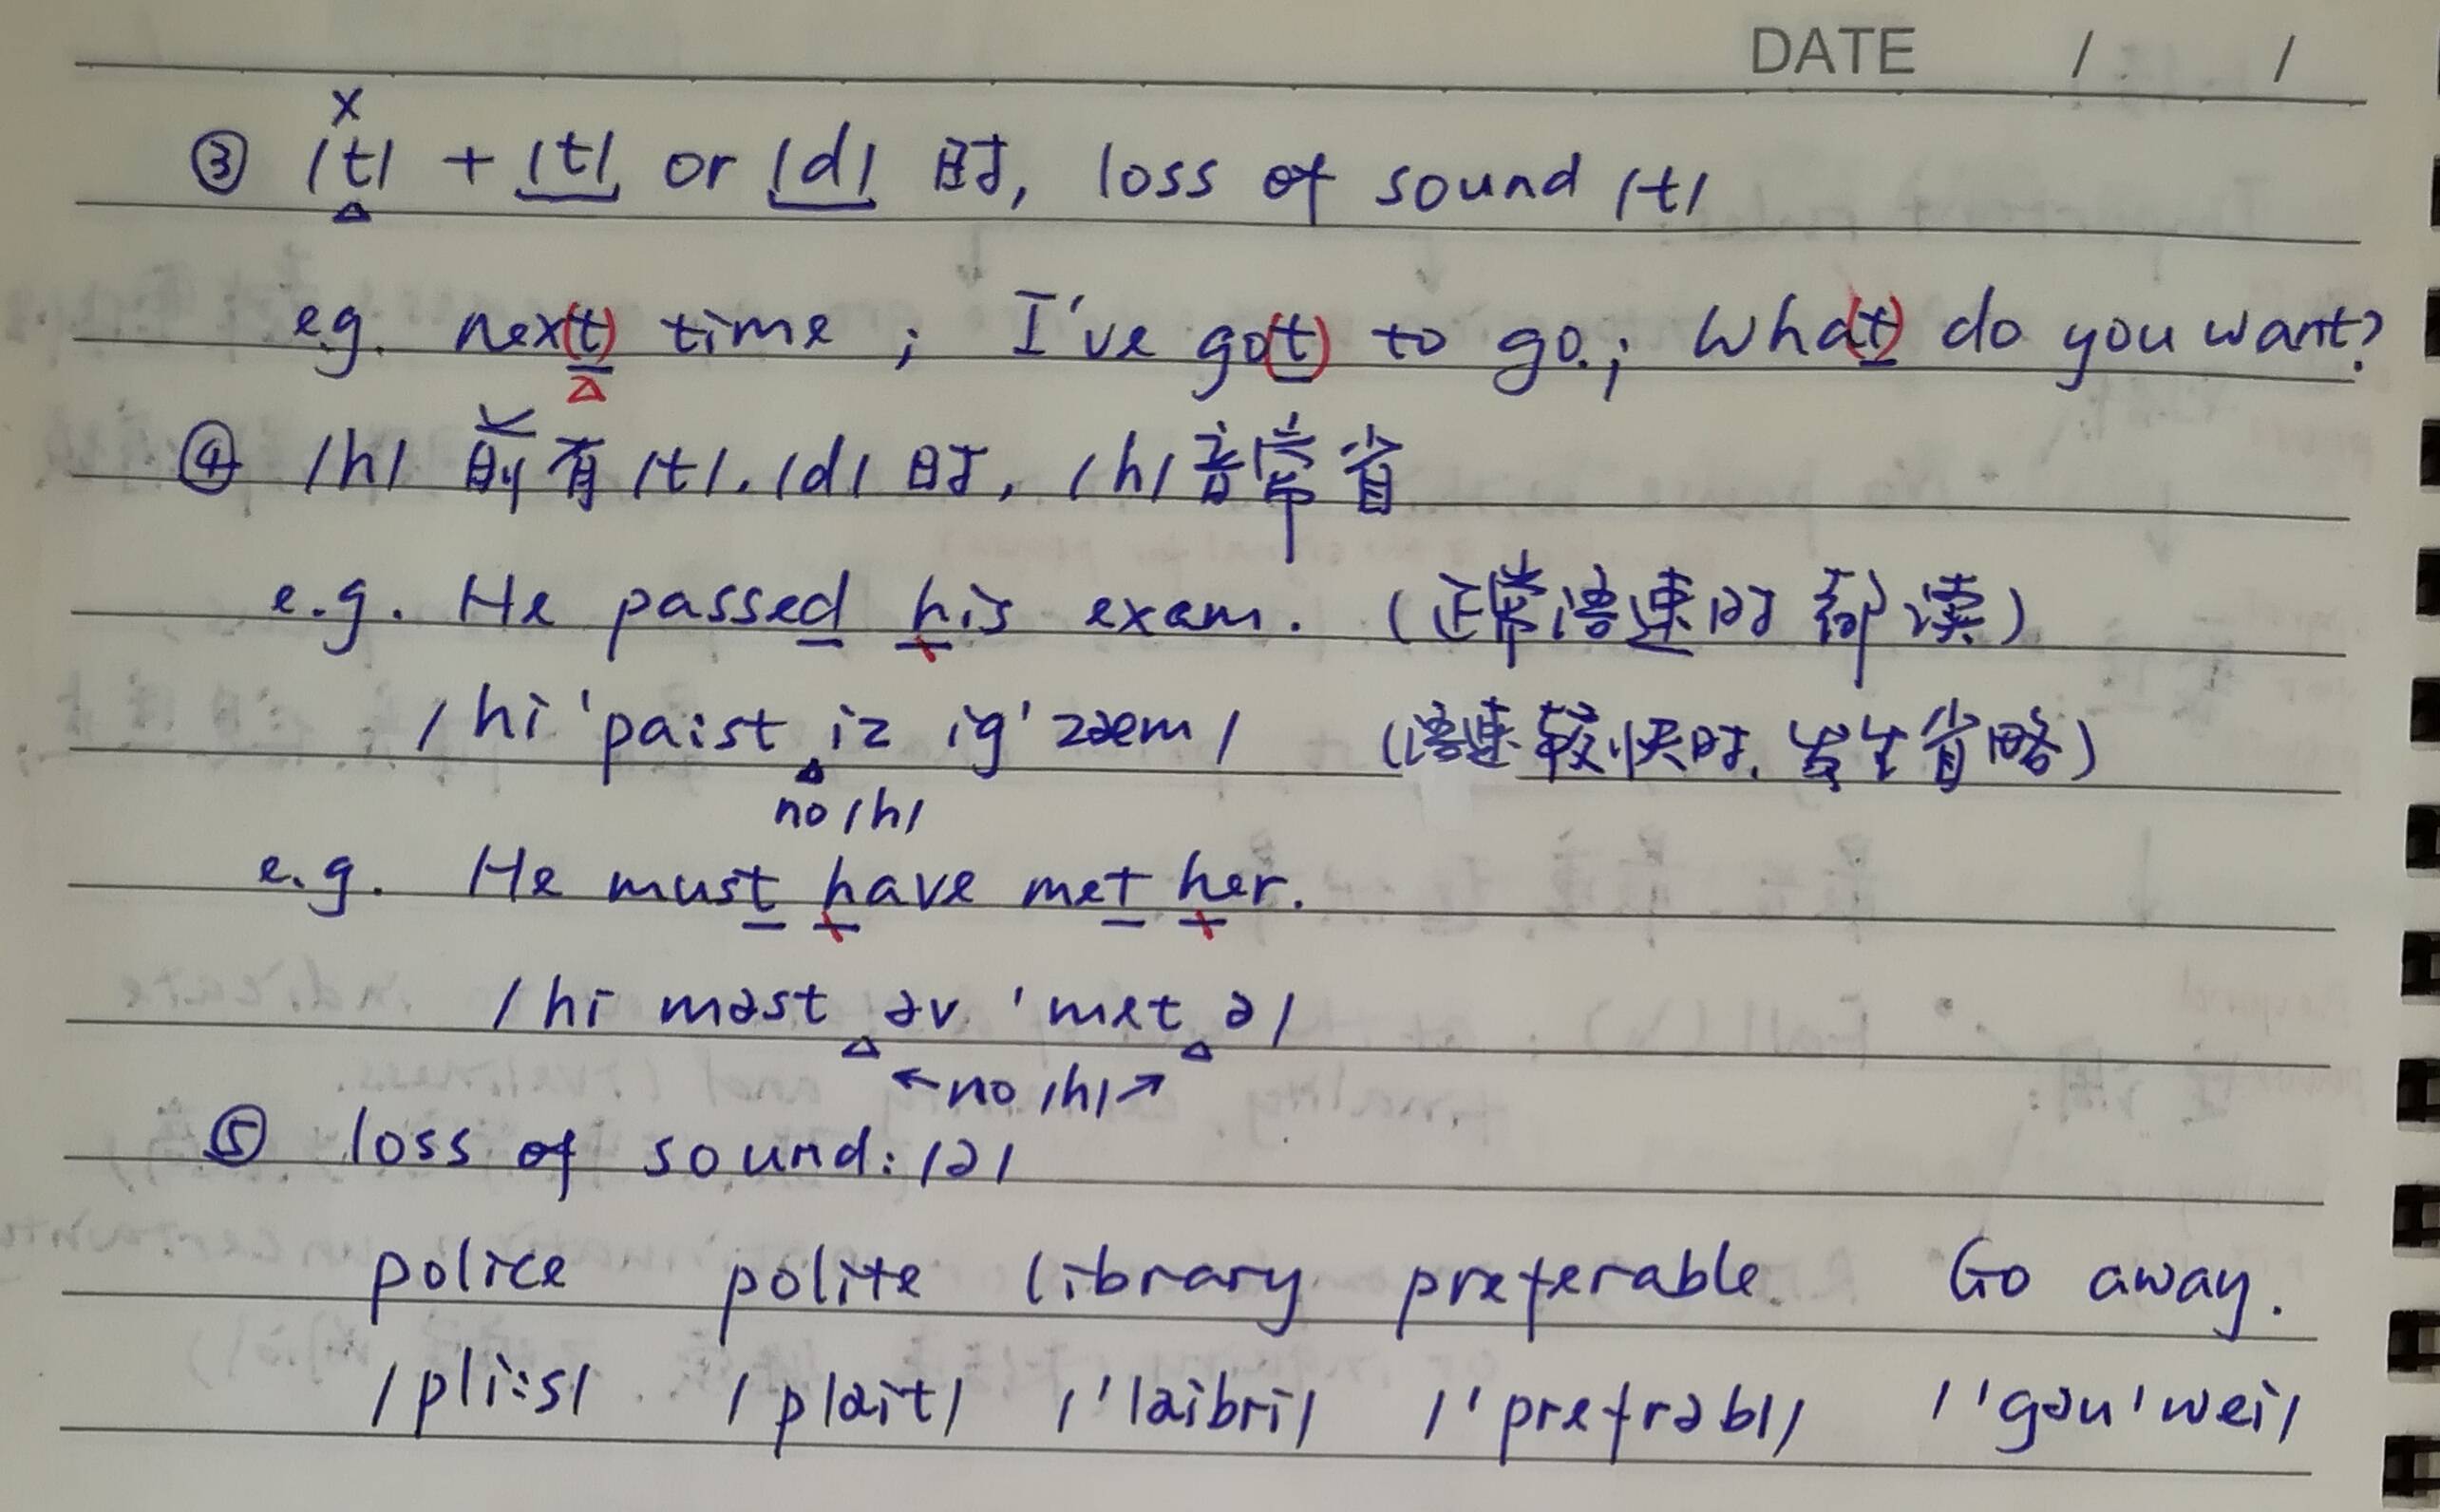 DATE / /
③ /t/ + /t/ or /d/ 时, loss of sound /t/
e.g. nex(t) time ; I've go(t) to go.; Wha(t) do you want?
④ /h/ 前有/t/./d/ 时, /h/音常省
e.g. He passed his exam. (正常语速时都读)
/hi 'pa:st iz ig'zæm/ (语速较快时, 发生省略)
no /h/
e.g. He must have met her.
/hi məst əv 'met ə/
←no /h/→
⑤ loss of sound: /ə/
police polite library preferable. Go away.
/pli:s/ /plait/ /'laibri/ /'prefrəbl/ /'gəu'wei/